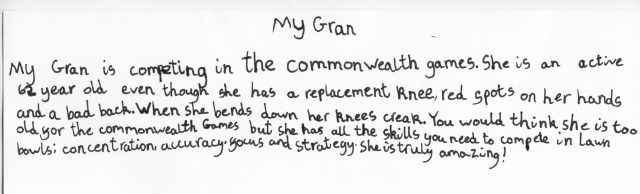 My Gran
My Gran is competing in the commonwealth games. She is an active
62 year old even though she has a replacement Knee, red spots on her hands
and a bad back. When She bends down her Knees creak. You would think she is too
old for the commonwealth Games but she has all the skills you need to compete in Lawn
bowls; concentration, accuracy, focus and strategy. She is truly amazing!